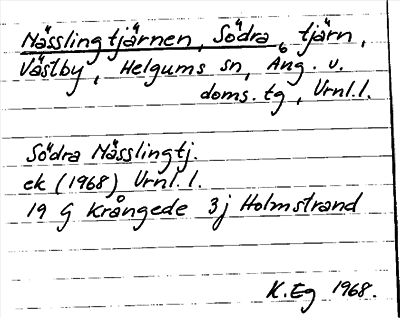 Nässlingtjärnen, Södra, tjärn,
Västby, Helgums sn, Ång. v.
doms. tg, Vrnl.l.
Södra Nässlingtj.
ek (1968) Vrnl.l.
19 G Krångede 3j Holmstrand
K.Eg 1968.